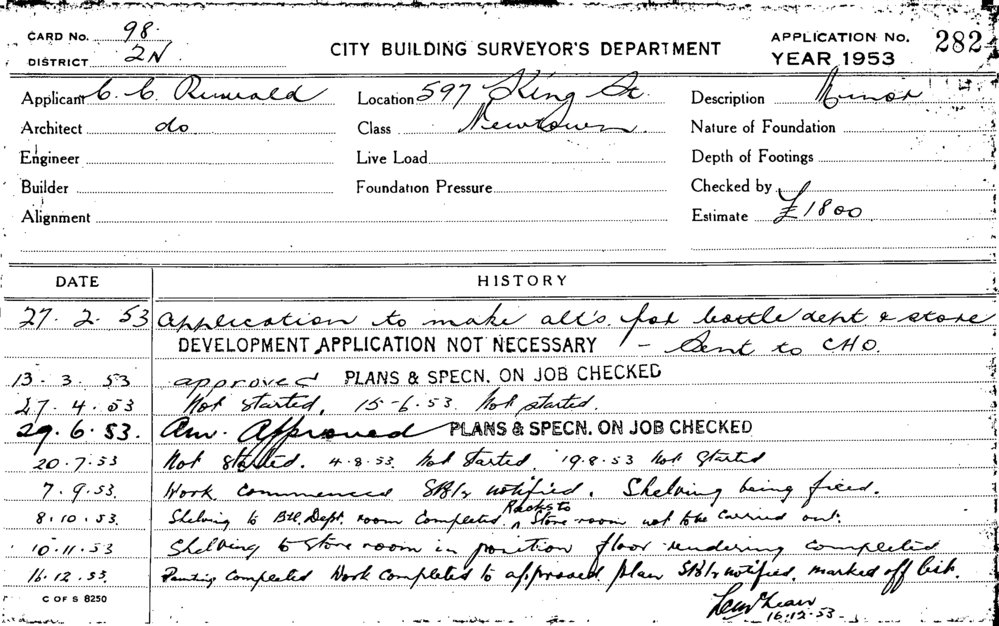 CARD No. 98
DISTRICT 2N
CITY BUILDING SURVEYOR'S DEPARTMENT
APPLICATION No. 282
YEAR 1953
Applicant C. C. Ruwald Location 597 King St. Description Minor
Architect do Class Newtown. Nature of Foundation
Engineer Live Load Depth of Footings
Builder Foundation Pressure Checked by
Alignment Estimate £1800
DATE HISTORY
27. 2. 53 Application to make alt's. for bottle dept & store
DEVELOPMENT APPLICATION NOT NECESSARY - Sent to CHO.
13. 3. 53 approved PLANS & SPECN. ON JOB CHECKED
27. 4. 53 Not started. 15-6.53. Not started.
29. 6. 53. Am. Approved PLANS & SPECN. ON JOB CHECKED
20.7.53 Not Started. 4.8.53. Not Started. 19.8.53 Not Started
7. 9. 53. Work commenced notified. Shelving being fixed.
8. 10. 53. Shelving to Btl. Dept. room Completed. Racks to Store room not to be Carried out.
10. 11. 53 Shelving to store room in position floor rendering completed
16. 12. 53. Completed Work completed to approved plan notified. marked off
16.12.53
C OF S 8250